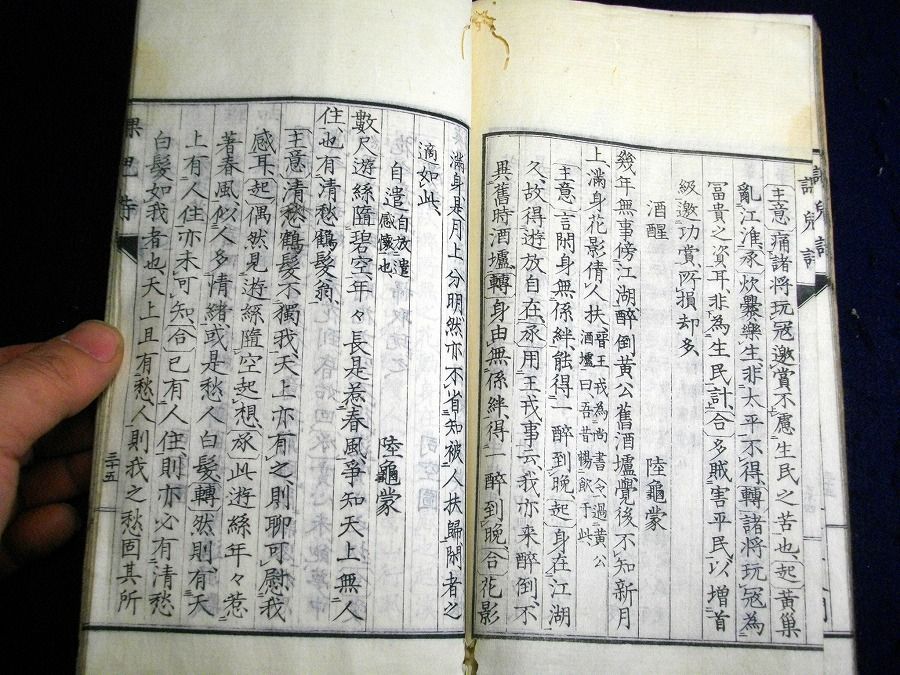 主意痛諸将玩冦邀賞不慮生民之苦也起黄巣
亂江淮承炊爨樂生非太平不得轉諸将玩冦為
冨貴之資耳非為生民計合多賊害平民以增首
級邀功賞所損却多
酒醒
陸龜蒙
幾年無事傍江湖醉倒黄公舊酒壚覺後不知新月
上滿身花影倩人扶晉王戎為尚書令過黄公
酒壚曰吾昔暢飲于此
主意言閑身無係絆能得一醉到晩起身在江湖
久故得遊放自在承用王戎事云我亦来醉倒不
異舊時酒壚轉身由無係絆得一醉到晩合花影
滿身是月上分明然亦不省知被人扶歸閑者之
適如此
自遣自放遣
感懐也
陸龜蒙
數尺遊絲隨碧空年々長是惹春風爭知天上無人
住也有清愁鶴髮翁
主意清愁鶴髮不獨我天上亦有之則聊可慰我
感耳起偶然見遊絲隨空起想承此遊絲年々惹
著春風似人多情緒或是愁人白髮轉然則有天
上有人住亦未可知合已有人住則亦必有清愁
白髮如我者也天上且有愁人則我之愁固其所
三十五